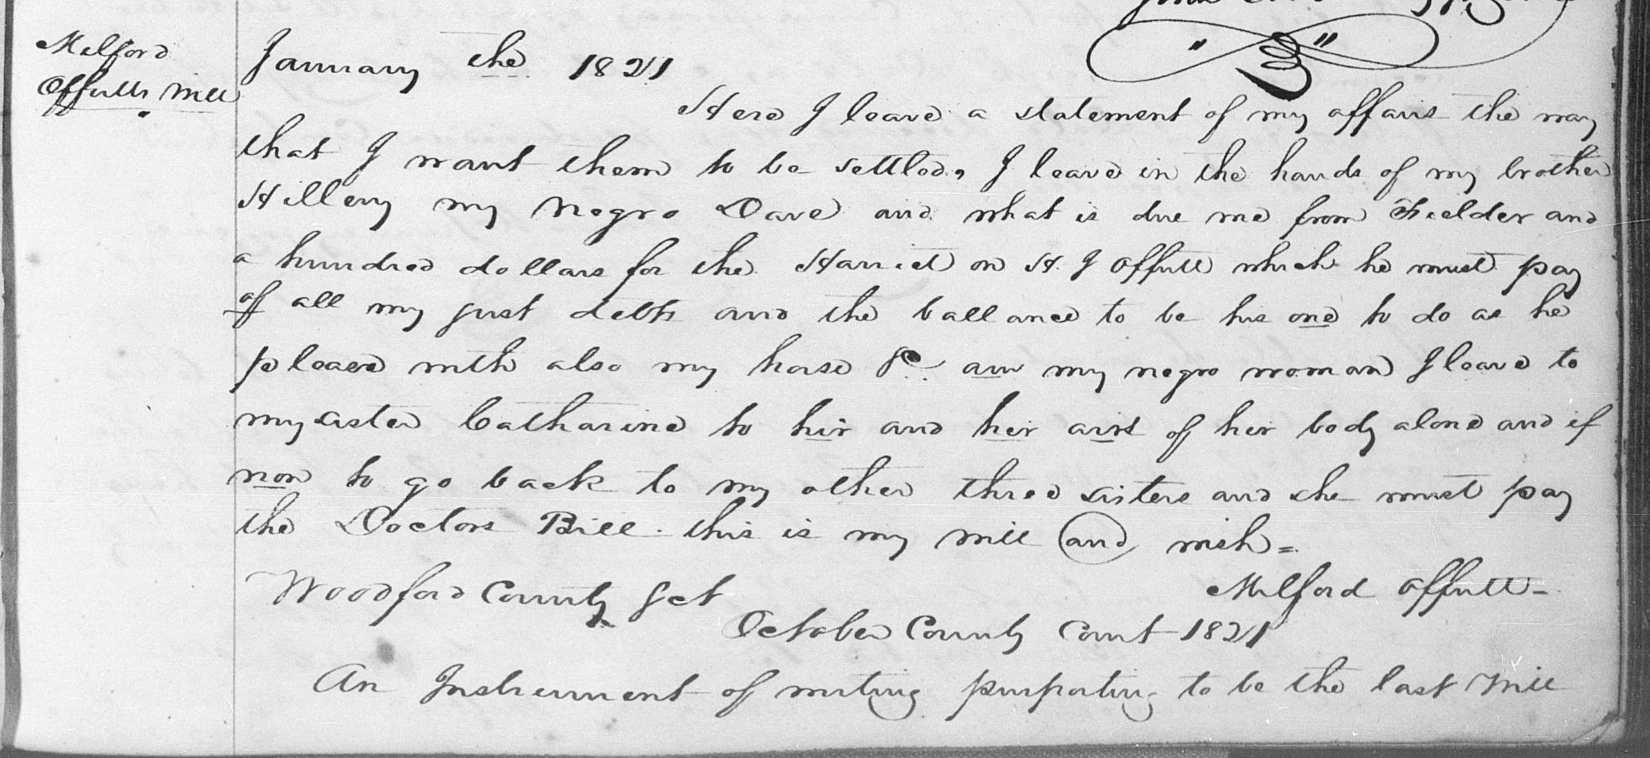 Milford
Offutts Will
January the 1821
Here I leave a statement of my affairs the way
that I want them to be settled, I leave in the hands of my brother
Hilleny my Negro Dave and what is due me from Fielder and
a hundred dollars for the Harriet on H. J Offutt which he must pay
off all my just debts and the ballance to be his one to do as he
pleases with also my horse &c. my negro woman I leave to
my sister Catharine to hir and heir airs of heir body alone and if
non to go back to my other three sisters and she must pay
the Doctors Bill. this is my will and wish =
Milford Offutt =
Woodford County Sct
October County Court 1821
An Instrument of writing purporting to be the last Will